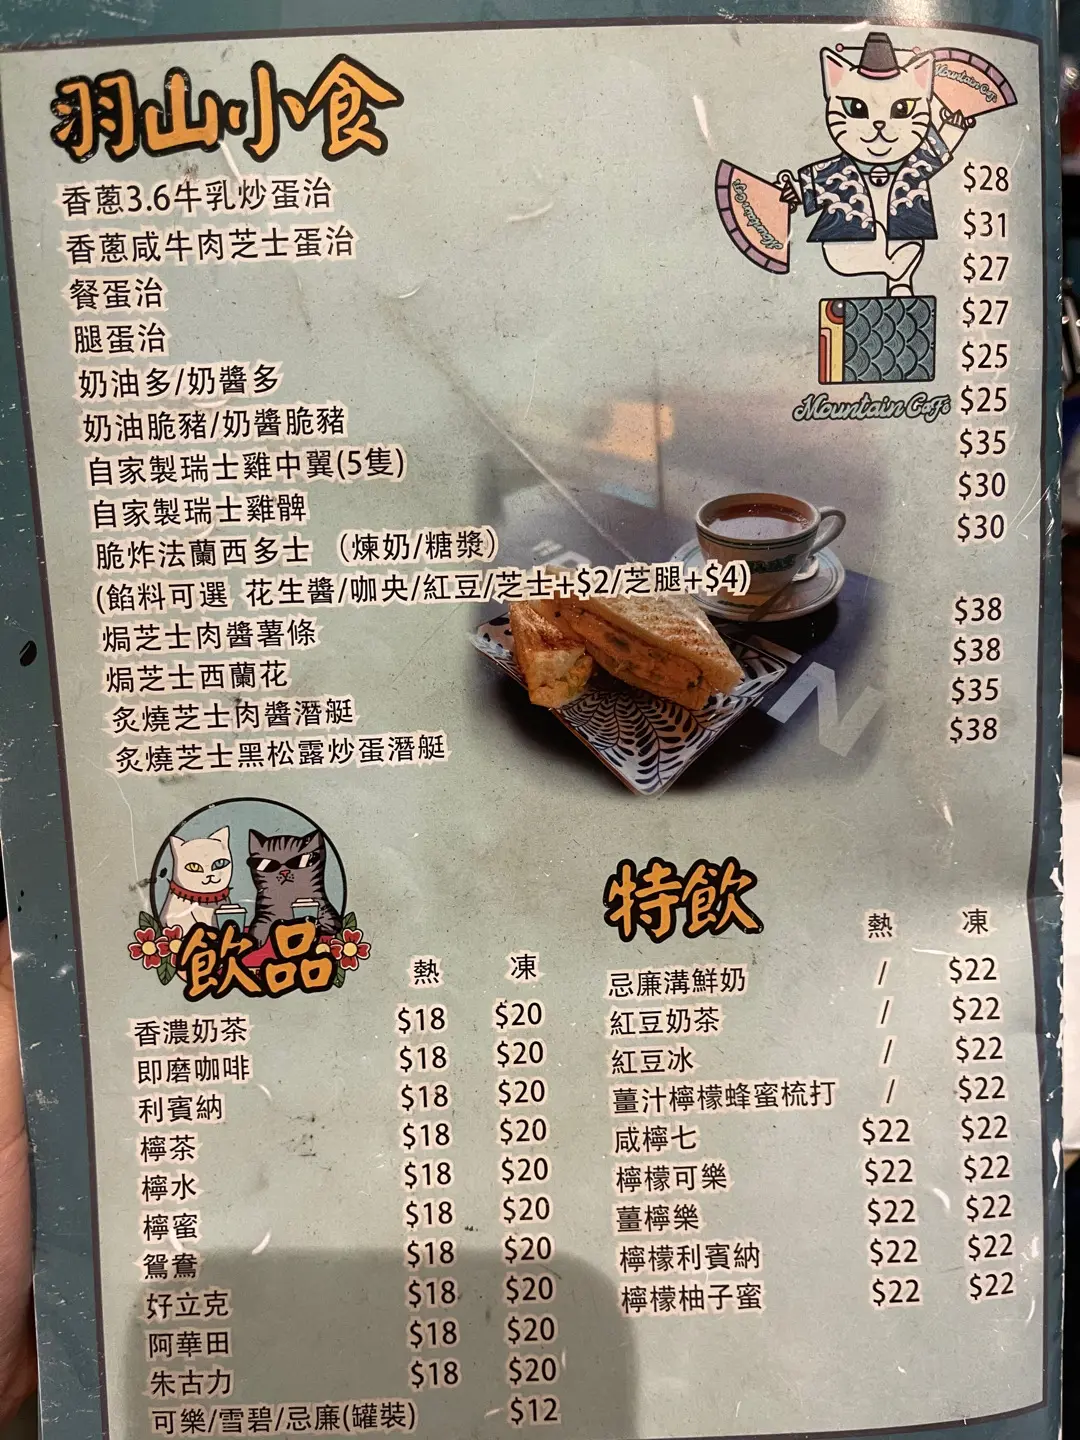 羽山小食
香蔥3.6牛乳炒蛋治 $28
香蔥咸牛肉芝士蛋治 $31
餐蛋治 $27
腿蛋治 $27
奶油多/奶醬多 $25
奶油脆豬/奶醬脆豬 $25
自家製瑞士雞中翼(5隻) $35
自家製瑞士雞髀 $30
脆炸法蘭西多士 （煉奶/糖漿） $30
(餡料可選 花生醬/咖央/紅豆/芝士+$2/芝腿+$4)
焗芝士肉醬薯條 $38
焗芝士西蘭花 $38
炙燒芝士肉醬潛艇 $35
炙燒芝士黑松露炒蛋潛艇 $38
Mountain Cafe
Mountain Cafe
Mountain Cafe
飲品 熱 凍
香濃奶茶 $18 $20
即磨咖啡 $18 $20
利賓納 $18 $20
檸茶 $18 $20
檸水 $18 $20
檸蜜 $18 $20
鴛鴦 $18 $20
好立克 $18 $20
阿華田 $18 $20
朱古力 $18 $20
可樂/雪碧/忌廉(罐裝) $12
特飲 熱 凍
忌廉溝鮮奶 / $22
紅豆奶茶 / $22
紅豆冰 / $22
薑汁檸檬蜂蜜梳打 / $22
咸檸七 $22 $22
檸檬可樂 $22 $22
薑檸樂 $22 $22
檸檬利賓納 $22 $22
檸檬柚子蜜 $22 $22